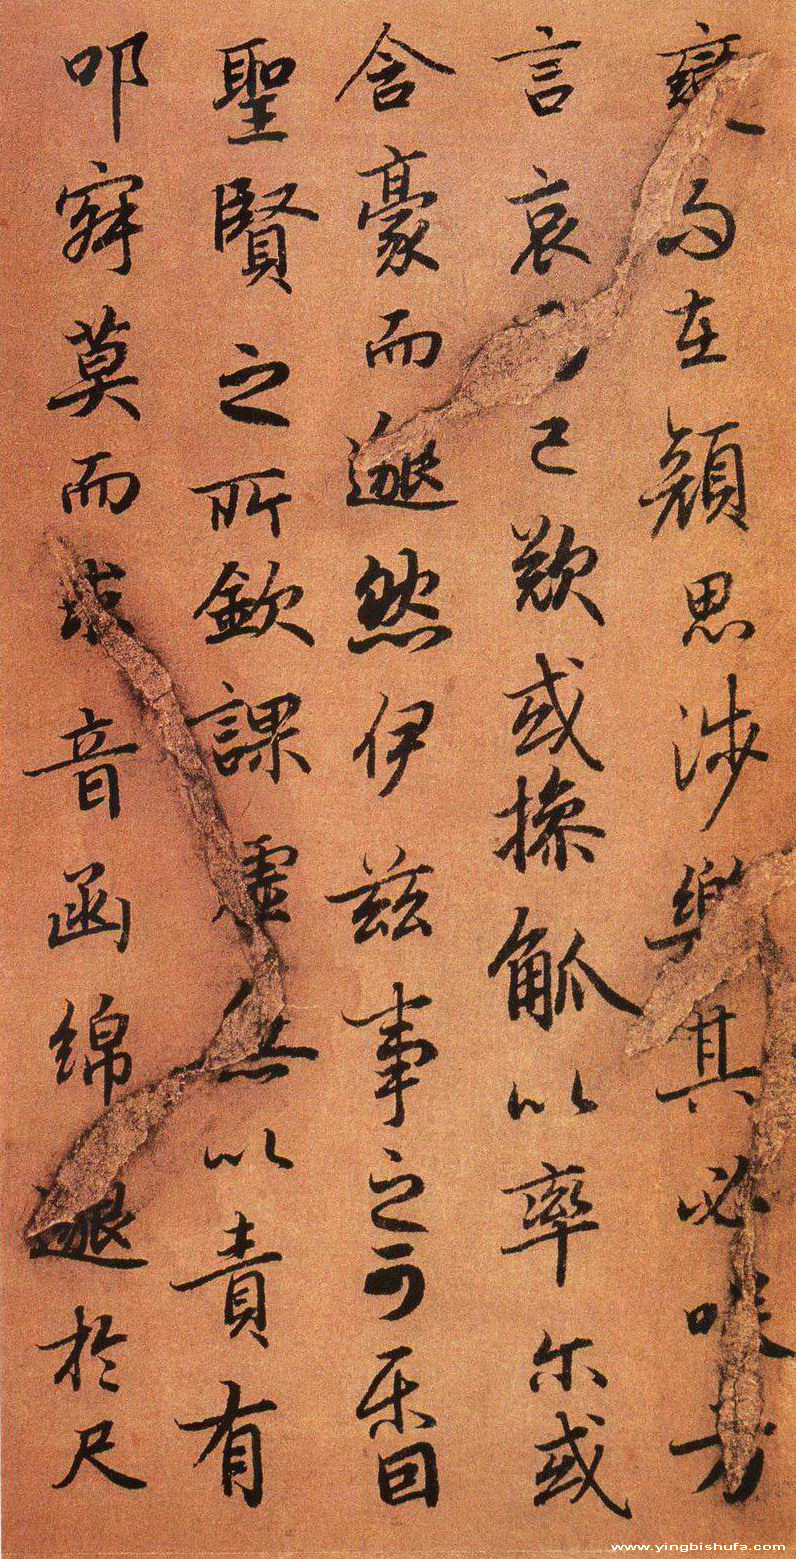 變而在顏思涉樂其必咲方
言哀已歎或操觚以率尔或
含豪而邈然伊茲事之可樂固
聖賢之所欽課虛無以責有
叩寂莫而求音函綿邈於尺
www.yingbishufa.com